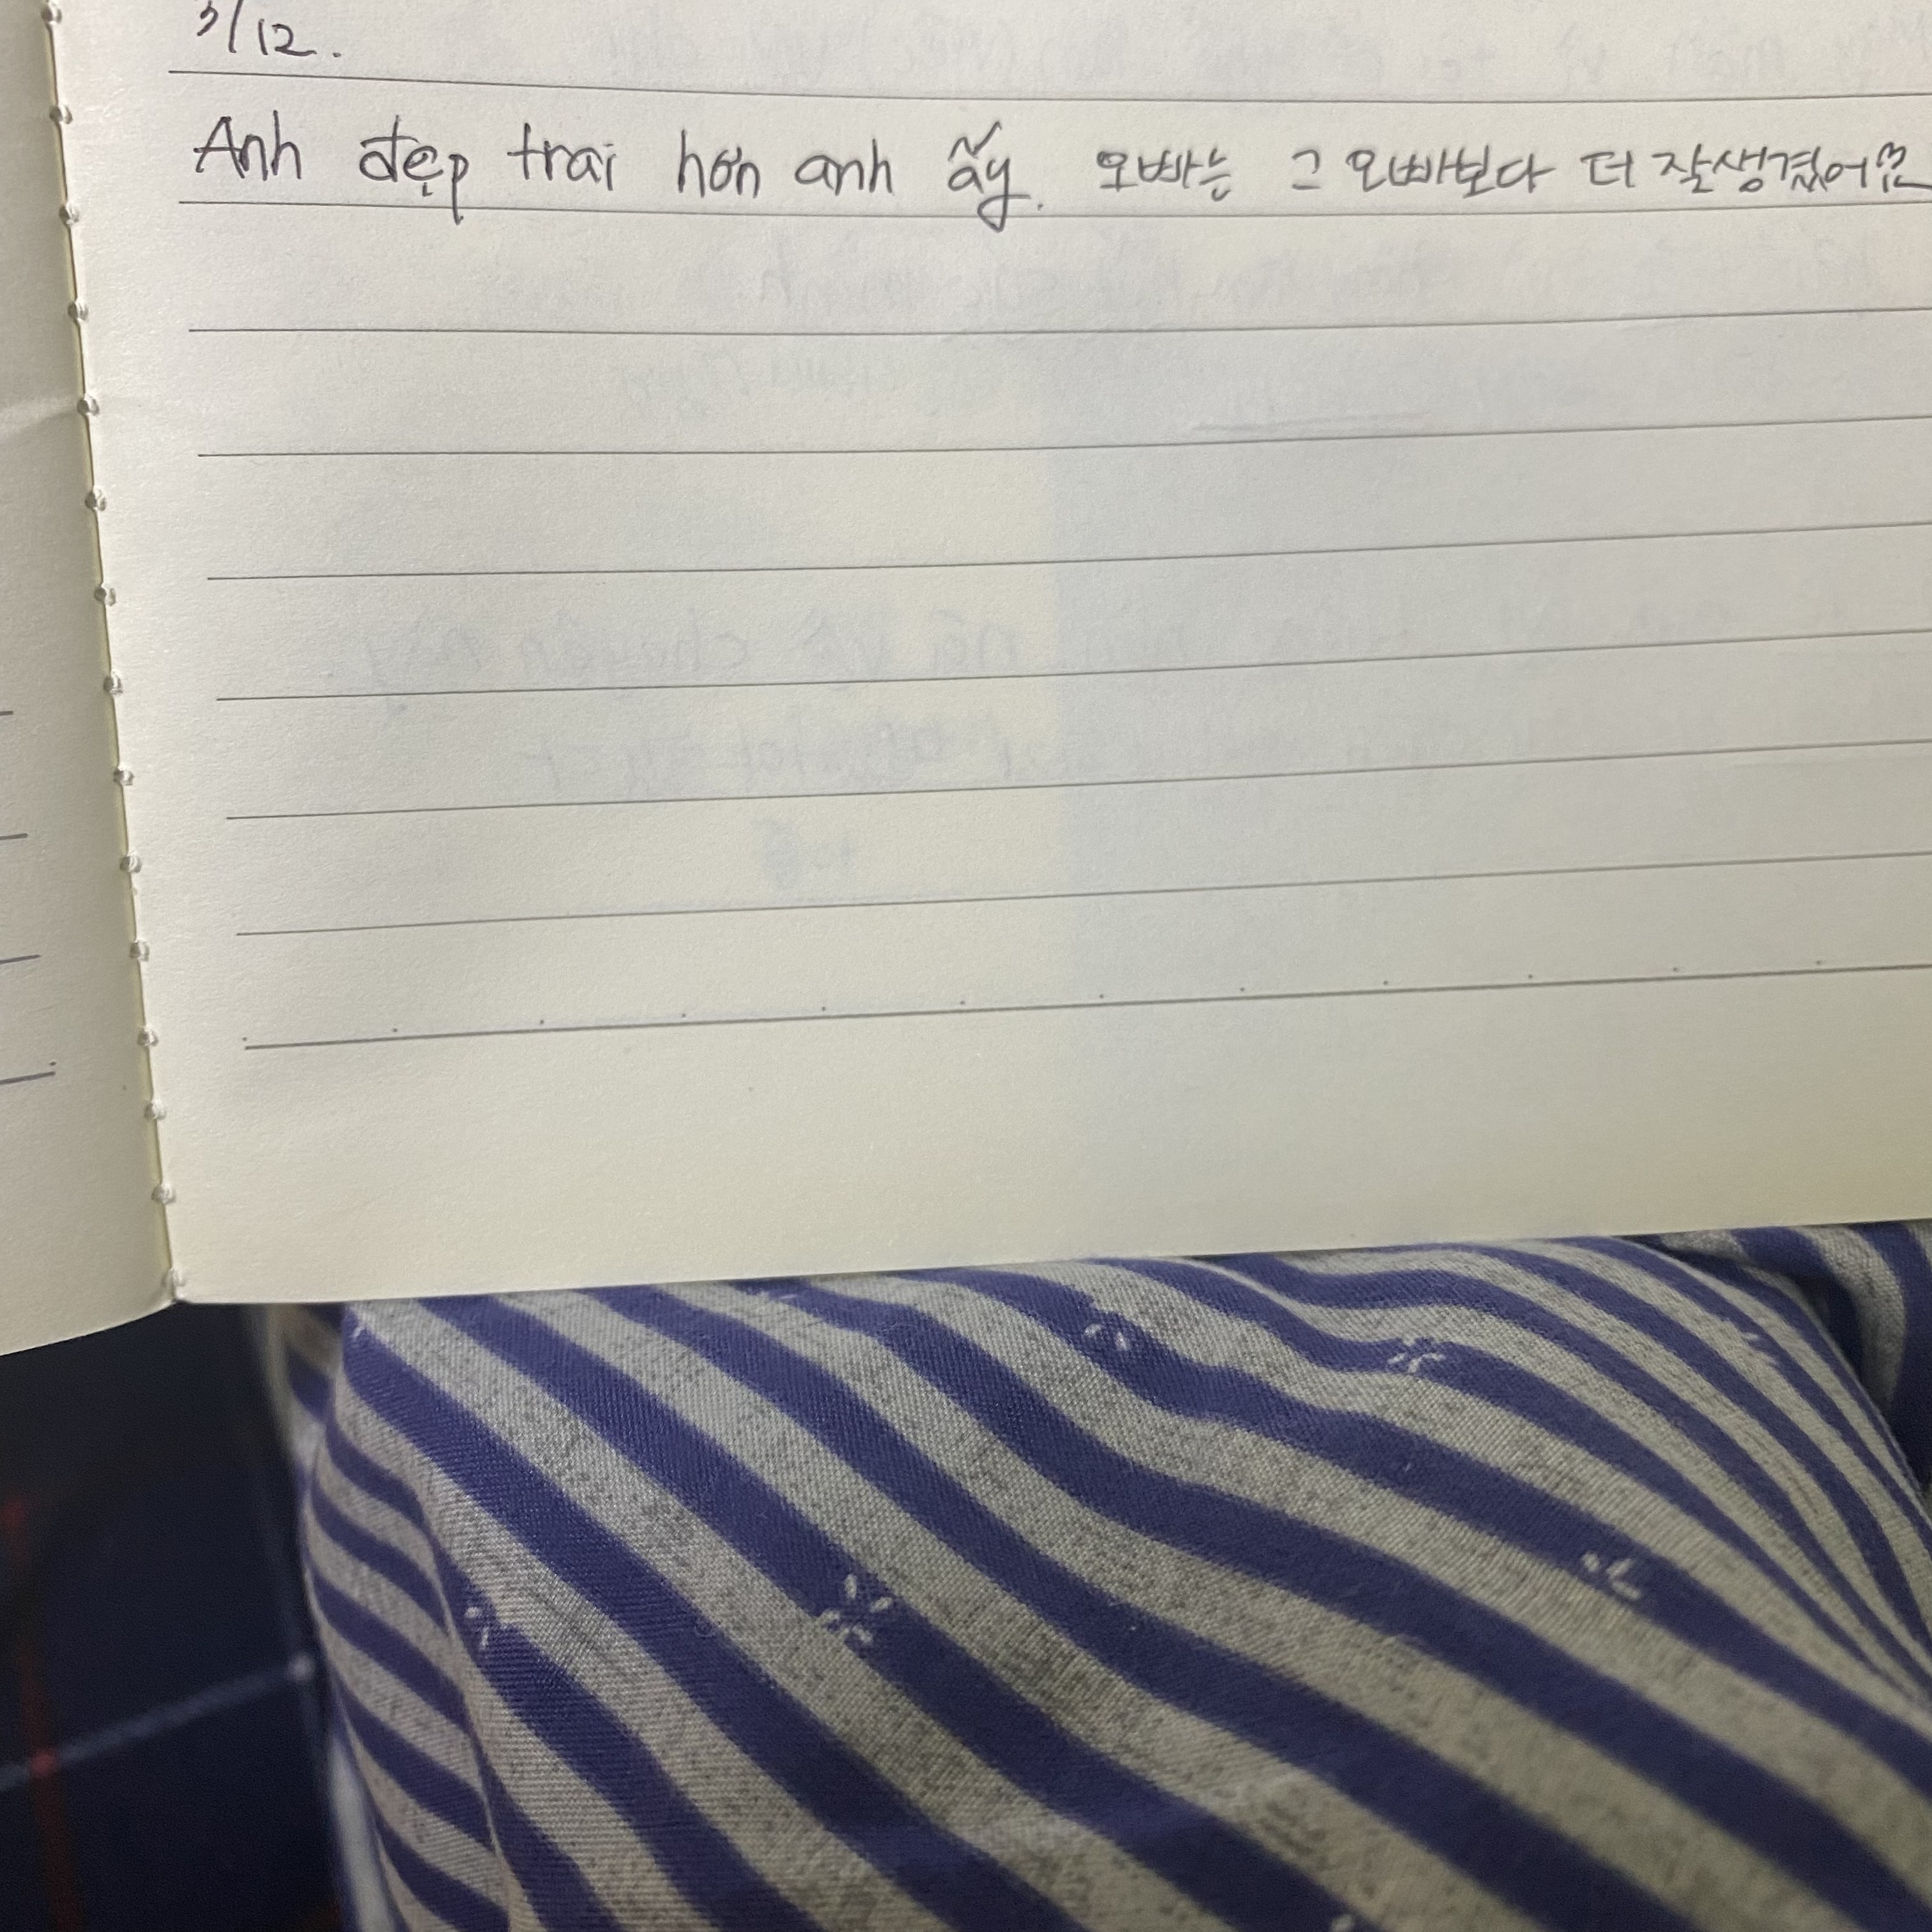 3/12.
Anh đẹp trai hơn anh ấy. 오빠는 그 오빠보다 더 잘생겼어요